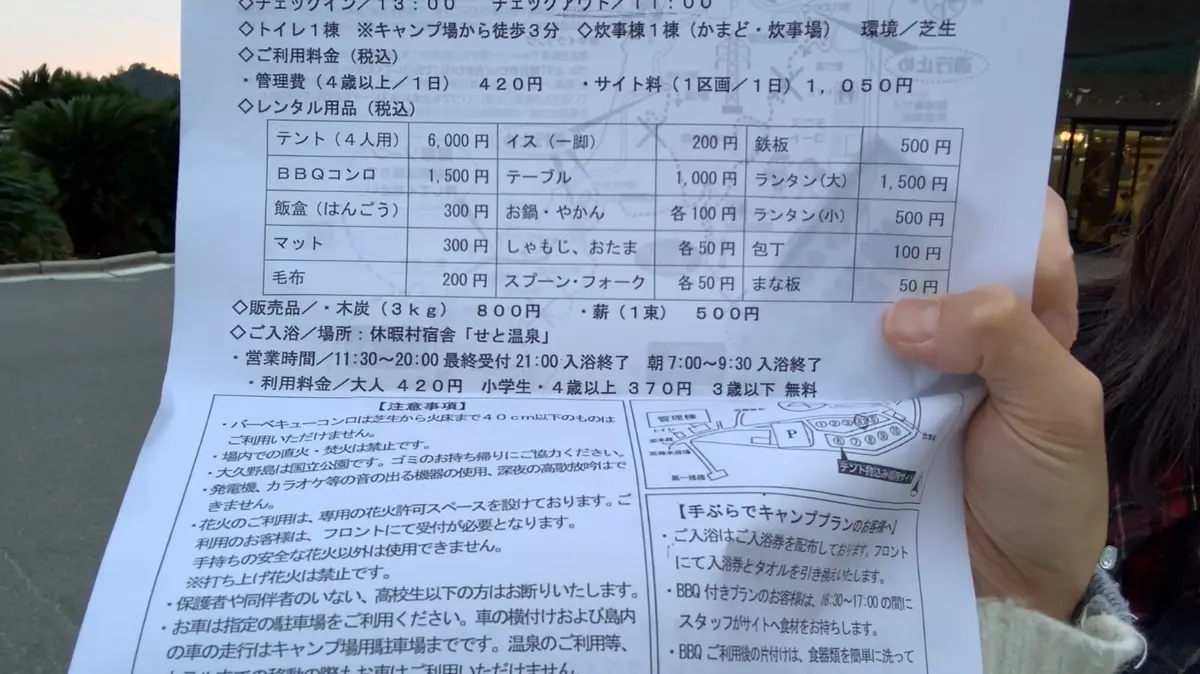 ◇チェックイン／１３：００　チェックアウト／１１：００
◇トイレ１棟　※キャンプ場から徒歩３分　◇炊事棟１棟（かまど・炊事場）　環境／芝生
◇ご利用料金（税込）
・管理費（４歳以上／１日）　４２０円　・サイト料（１区画／１日）１，０５０円
◇レンタル用品（税込）
テント（４人用）　6,000円　イス（一脚）　200円　鉄板　500円
ＢＢＱコンロ　1,500円　テーブル　1,000円　ランタン(大)　1,500円
飯盒（はんごう）　300円　お鍋・やかん　各100円　ランタン(小)　500円
マット　300円　しゃもじ、おたま　各50円　包丁　100円
毛布　200円　スプーン・フォーク　各50円　まな板　50円
◇販売品／・木炭（３ｋｇ）　８００円　・薪（１束）　５００円
◇ご入浴／場所：休暇村宿舎「せと温泉」
・営業時間／11:30～20:00 最終受付 21:00 入浴終了　朝 7:00～9:30 入浴終了
・利用料金／大人 ４２０円　小学生・４歳以上 ３７０円　３歳以下 無料
【注意事項】
・バーベキューコンロは芝生から火床まで４０ｃｍ以下のものは
ご利用いただけません。
・場内での直火・焚火は禁止です。
・大久野島は国立公園です。ゴミのお持ち帰りにご協力ください。
・発電機、カラオケ等の音の出る機器の使用、深夜の高歌放吟はで
きません。
・花火のご利用は、専用の花火許可スペースを設けております。ご
利用のお客様は、フロントにて受付が必要となります。
手持ちの安全な花火以外は使用できません。
※打ち上げ花火は禁止です。
・保護者や同伴者のいない、高校生以下の方はお断りいたします。
・お車は指定の駐車場をご利用ください。車の横付けおよび島内
の車の走行はキャンプ場用駐車場までです。温泉のご利用等、
管理棟
トイレ
P
第一桟橋
テント持込み専用サイト
【手ぶらでキャンププランのお客様へ】
・ご入浴はご入浴券を配布しております。フロント
にて入浴券とタオルを引き換えいたします。
・BBQ 付きプランのお客様は、16:30～17:00 の間に
スタッフがサイトへ食材をお持ちします。
・BBQ ご利用後の片付けは、食器類を簡単に洗って